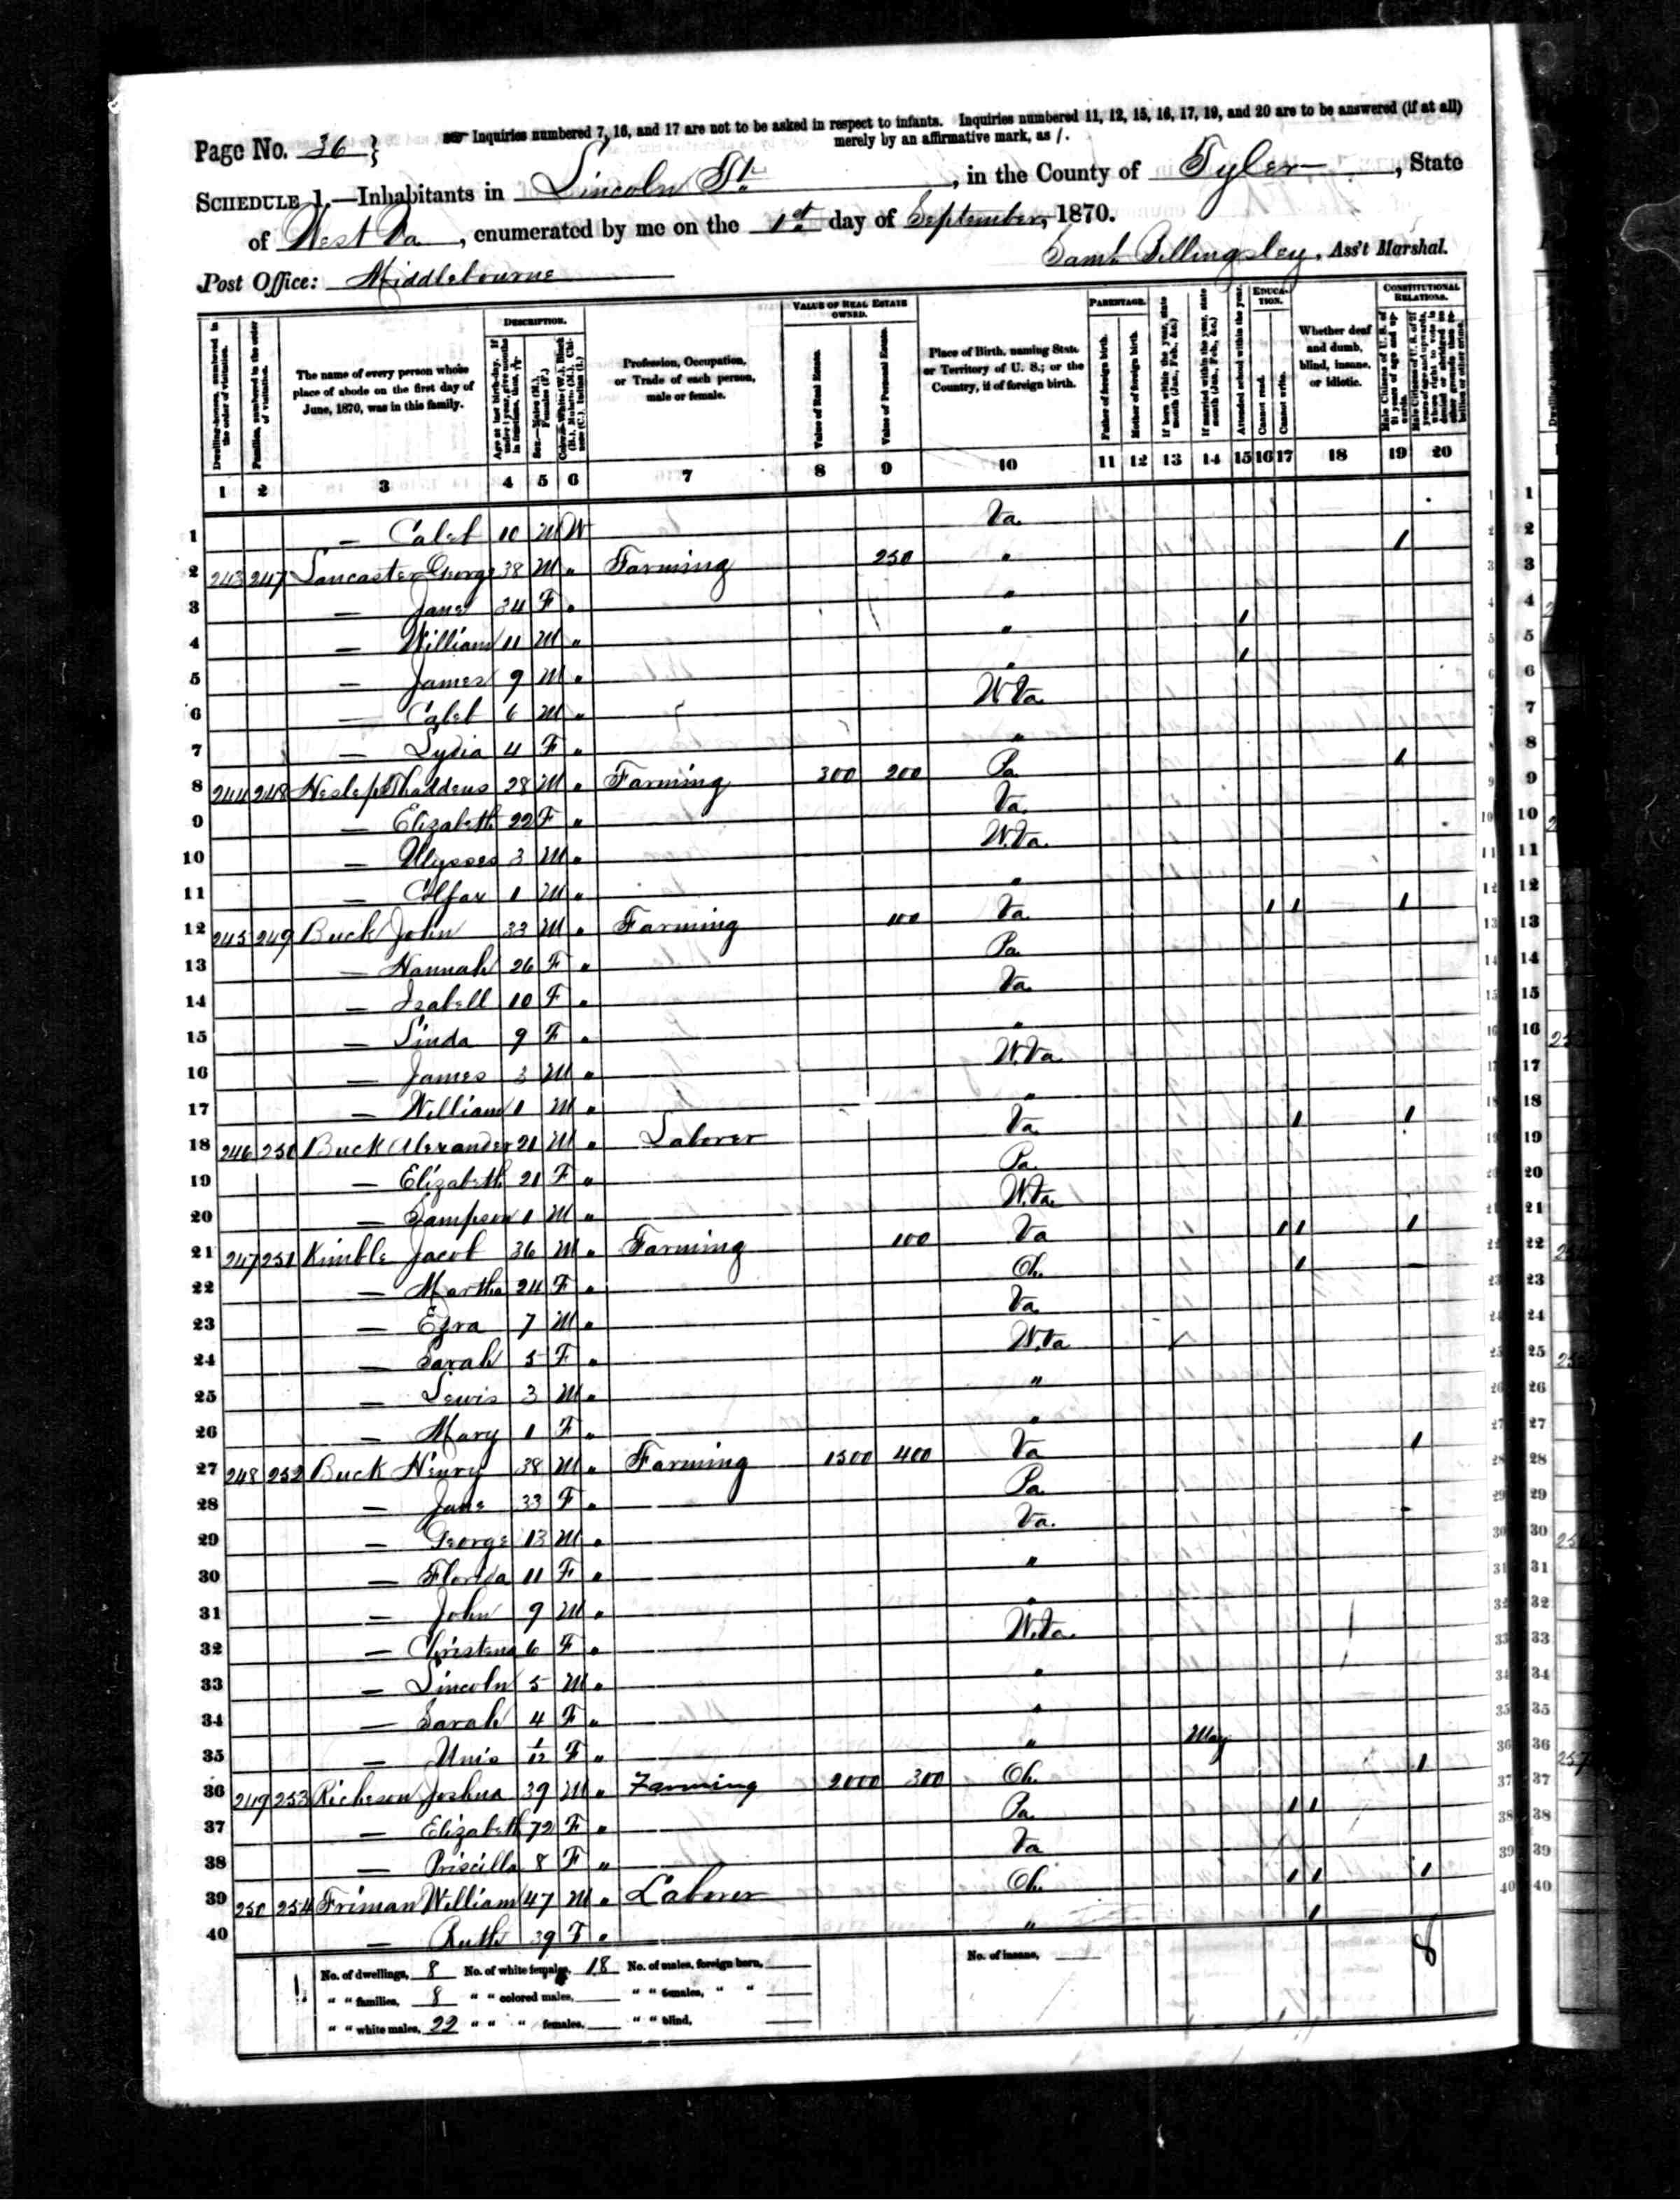 Page No. 36 } Inquiries numbered 7, 16, and 17 are not to be asked in respect to infants. Inquiries numbered 11, 12, 15, 16, 17, 19, and 20 are to be answered (if at all)
merely by an affirmative mark, as /.
SCHEDULE 1.—Inhabitants in Lincoln , in the County of Tyler , State
of West Va , enumerated by me on the 1st day of September, 1870.
Post Office: Middlebourne Saml. Billingsley, Ass't Marshal.
DESCRIPTION. VALUE OF REAL ESTATE OWNED. PARENTAGE. EDUCATION. CONSTITUTIONAL RELATIONS.
Dwelling-houses, numbered in the order of visitation. Families, numbered in the order of visitation. The name of every person whose place of abode on the first day of June, 1870, was in this family. Profession, Occupation, or Trade of each person, male or female. Value of Real Estate. Value of Personal Estate. Place of Birth, naming State or Territory of U. S.; or the Country, if of foreign birth. Father of foreign birth. Mother of foreign birth. Attended school within the year. Cannot read. Cannot write. Whether deaf and dumb, blind, insane, or idiotic.
1 2 3 4 5 6 7 8 9 10 11 12 13 14 15 16 17 18 19 20
1 — Caleb 10 M W Va.
2 243 247 Lancaster George 38 M " Farming 250 " /
3 — Jane 34 F " "
4 — William 11 M " " /
5 — James 9 M " " /
6 — Caleb 6 M " W Va.
7 — Lydia 4 F " "
8 244 248 Heslep Thaddeus 28 M " Farming 300 200 Pa /
9 — Elizabeth 22 F " Va
10 — Ulysses 3 M " W.Va.
11 — Colfax 1 M " "
12 245 249 Buck John 33 M " Farming 100 Va / / /
13 — Hannah 26 F " Pa
14 — Izabell 10 F " Va
15 — Linda 9 F " "
16 — James 3 M " W.Va
17 — William 1 M " "
18 246 250 Buck Alexander 21 M " Laborer Va / /
19 — Elizabeth 21 F " Pa
20 — Sampson 1 M " W.Va
21 247 251 Kimble Jacob 36 M " Farming 100 Va / / /
22 — Martha 24 F " Oh. /
23 — Ezra 7 M " Va
24 — Sarah 5 F " W.Va
25 — Lewis 3 M " "
26 — Mary 1 F " "
27 248 252 Buck Henry 38 M " Farming 1500 400 Va /
28 — Jane 33 F " Pa
29 — George 13 M " Va.
30 — Florida 11 F " "
31 — John 9 M " "
32 — Christena 6 F " W.Va.
33 — Lincoln 5 M " "
34 — Sarah 4 F " "
35 — Unis 1/12 F " " May
36 249 253 Richeson Joshua 39 M " Farming 2000 300 Oh. /
37 — Elizabeth 72 F " Pa / /
38 — Priscilla 8 F " Va
39 250 254 Friman William 47 M " Laborer Oh. / / /
40 — Ruth 39 F " " /
No. of dwellings, 8 No. of white females, 18 No. of males, foreign born, No. of insane, 8
" " families, 8 " " colored males, " " females, " "
" " white males, 22 " " " females, " " blind,